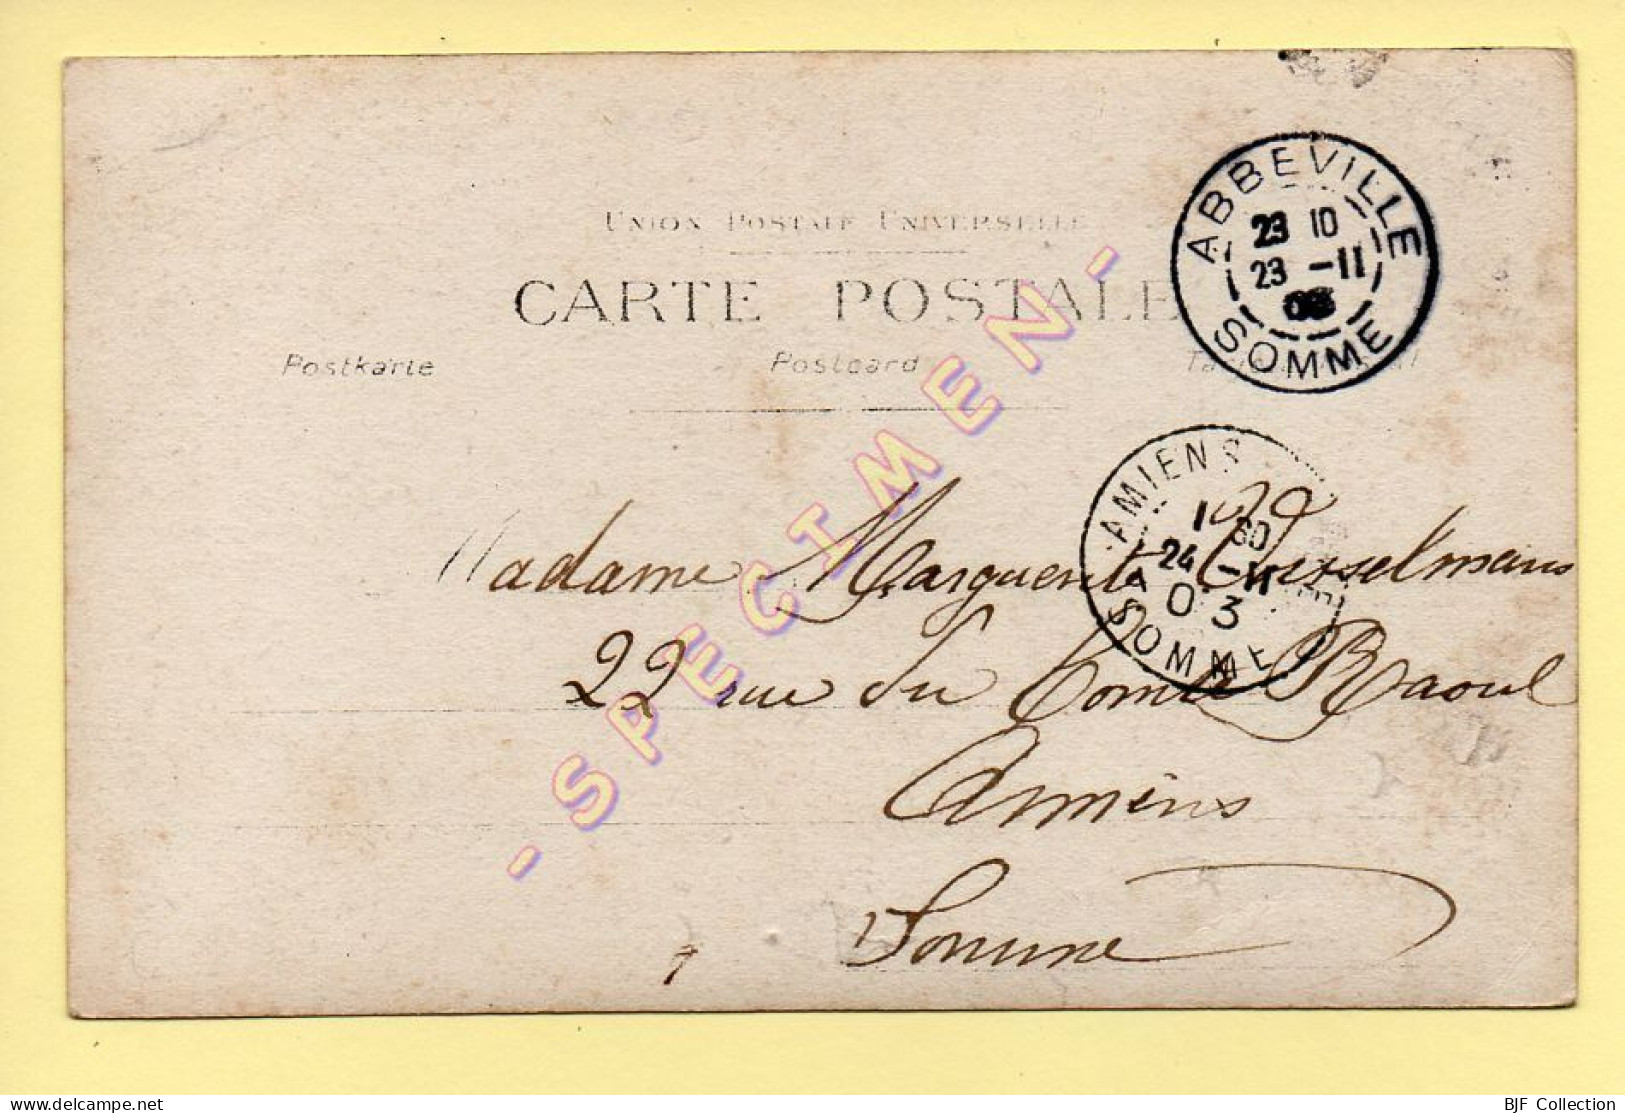 UNION POSTALE UNIVERSELLE
CARTE POSTALE
Postkarte Postcard
ABBEVILLE
23 10
23 -11
03
SOMME
AMIENS
24 -11
03
SOMME
Madame Marguerite
22 rue du Comte Raoul
Amiens
Somme
- SPECIMEN -
BJF Collection